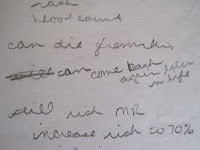 rash
blood count
can die from this
can come back
again later
in life
still risk MR
increase risk to 70%